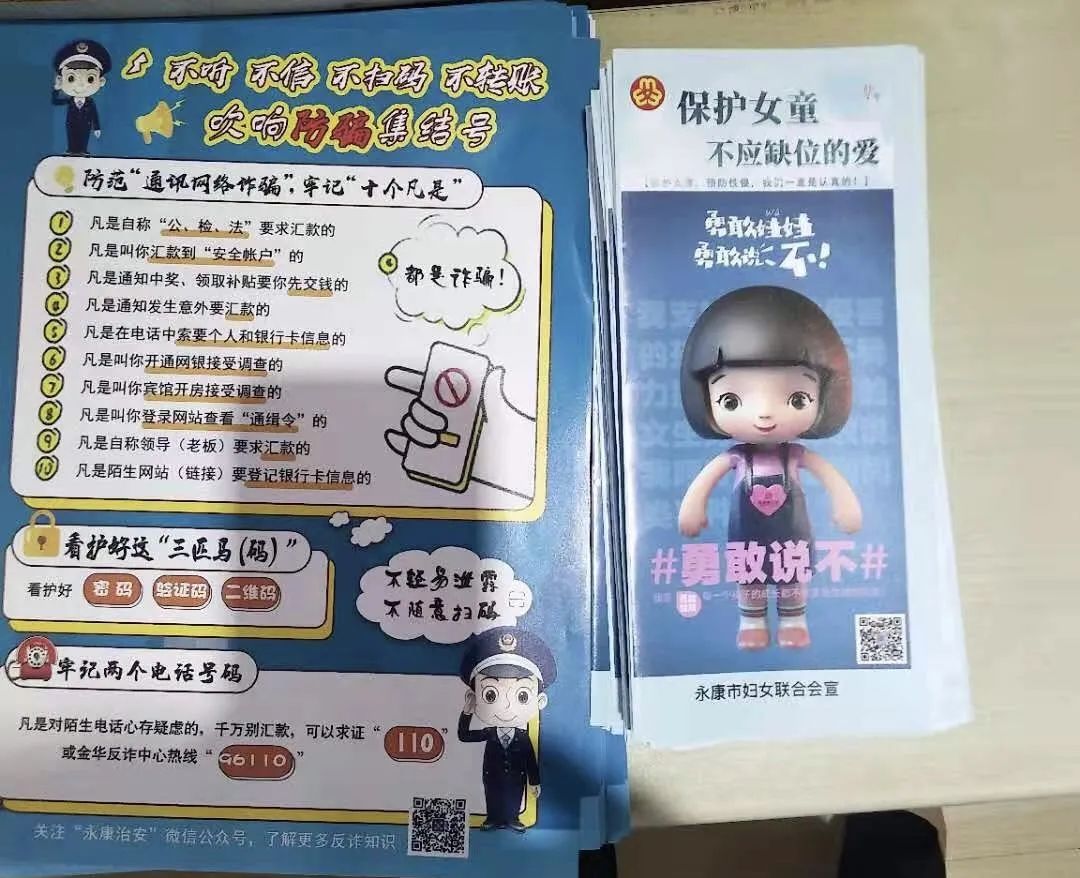 不听 不信 不扫码 不转账
吹响防骗集结号
防范“通讯网络诈骗”，牢记“十个凡是”
1 凡是自称“公、检、法”要求汇款的
2 凡是叫你汇款到“安全帐户”的
3 凡是通知中奖、领取补贴要你先交钱的
4 凡是通知发生意外要汇款的
5 凡是在电话中索要个人和银行卡信息的
6 凡是叫你开通网银接受调查的
7 凡是叫你宾馆开房接受调查的
8 凡是叫你登录网站查看“通缉令”的
9 凡是自称领导（老板）要求汇款的
10 凡是陌生网站（链接）要登记银行卡信息的
都是诈骗！
看护好这“三匹马(码)”
看护好 密码 验证码 二维码
不轻易泄露
不随意扫码
牢记两个电话号码
凡是对陌生电话心存疑虑的，千万别汇款，可以求证“110”
或金华反诈中心热线“96110”
关注“永康治安”微信公众号，了解更多反诈知识
保护女童
不应缺位的爱
预防性侵，我们一直是认真的！】
wá
勇敢娃娃
勇敢说 不！
#勇敢说不#
永康市妇女联合会宣